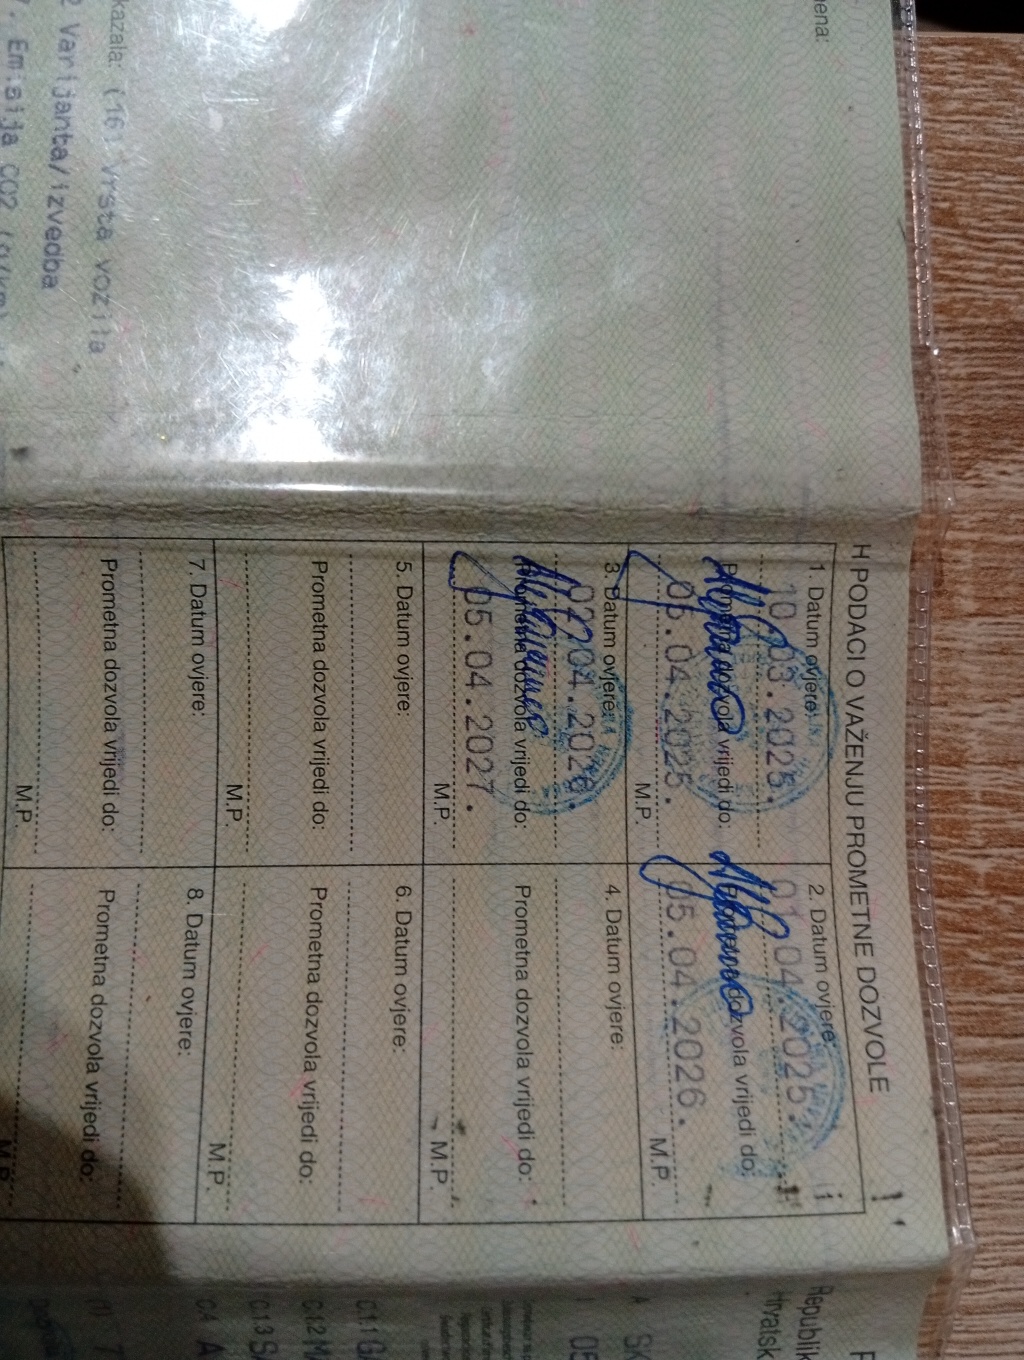 H PODACI O VAŽENJU PROMETNE DOZVOLE
1. Datum ovjere:
10.03.2025.
Prometna dozvola vrijedi do:
05.04.2025.
M.P.
2. Datum ovjere:
01.04.2025.
Prometna dozvola vrijedi do:
05.04.2026.
M.P.
3. Datum ovjere:
04.2026.
Prometna dozvola vrijedi do:
05.04.2027.
M.P.
4. Datum ovjere:
Prometna dozvola vrijedi do:
M.P.
5. Datum ovjere:
Prometna dozvola vrijedi do:
M.P.
6. Datum ovjere:
Prometna dozvola vrijedi do:
M.P.
7. Datum ovjere:
Prometna dozvola vrijedi do:
M.P.
8. Datum ovjere:
Prometna dozvola vrijedi do:
M.P.
kazala: (16) Vrsta vozila
2 Varijanta/izvedba
7. Emisija CO2 (g/km)
Republik
Hrvatsk
A SK
C.1.1 GA
C.1.2 MA
C.1.3 SA
C.4 A